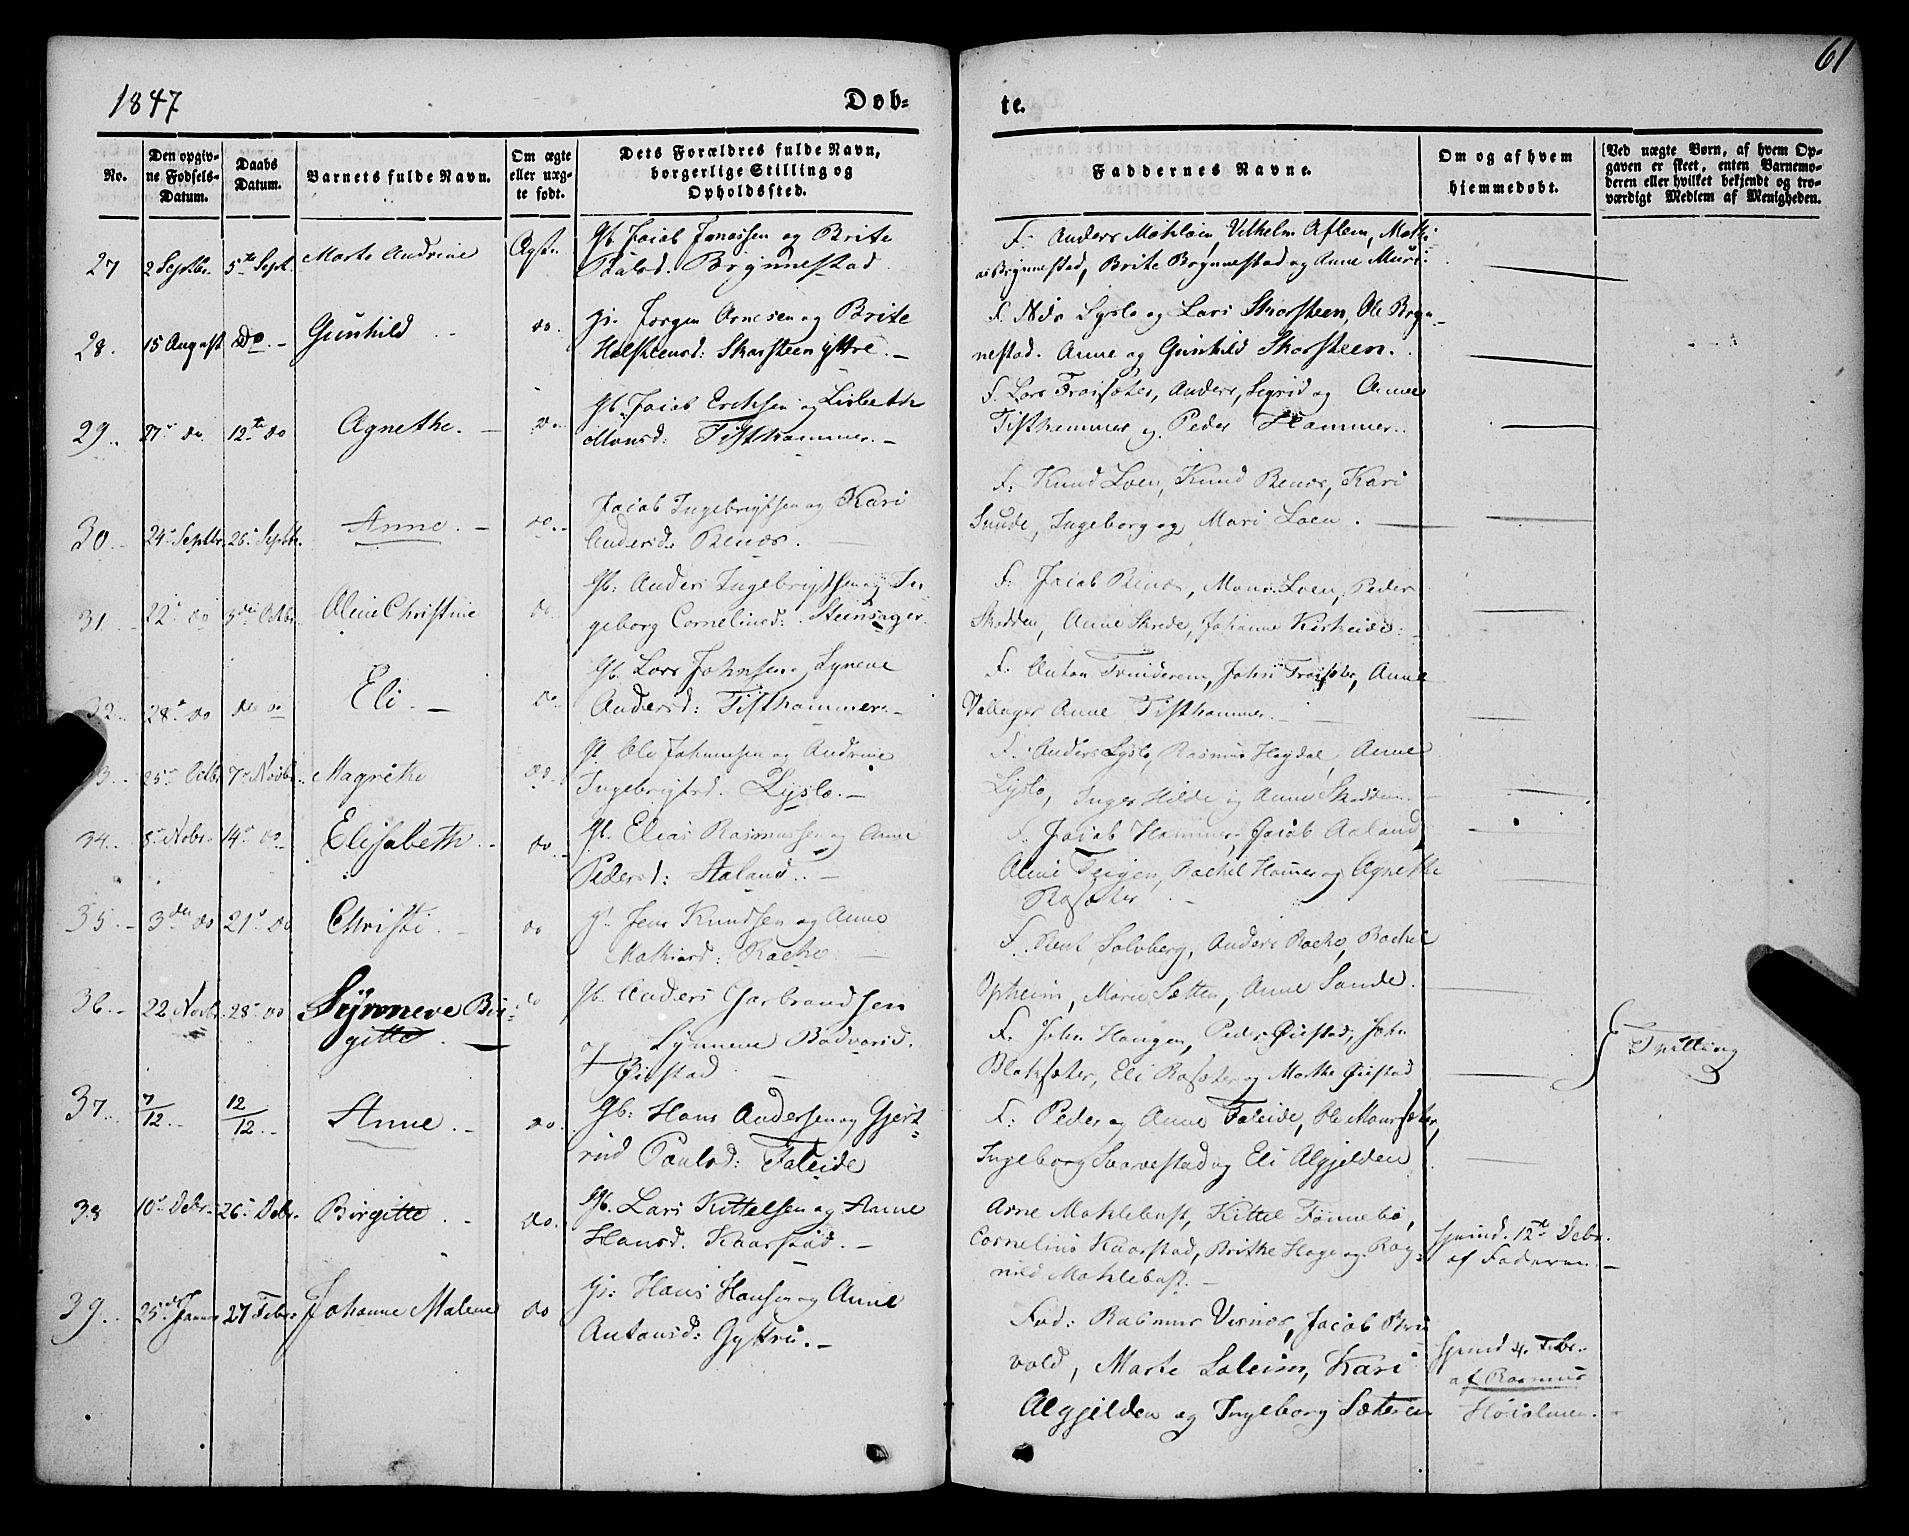 1847
Døb-
te.
61
No.
Den opgiv-
ne Fødsels-
Datum.
Daabs
Datum.
Barnets fulde Navn.
Om ægte
eller uæg-
te født.
Dets Forældres fulde Navn,
borgerlige Stilling og
Opholdssted.
Faddernes Navne.
Om og af hvem
hjemmedøbt.
(Ved uægte Børn, af hvem Op-
gaven er skeet, enten Barnemo-
deren eller hvilket bekjendt og tro-
værdigt Medlem af Menigheden.
27 2 Septbr. 5te Sept. Marte Andrine Ægte. Gb. Jacob Jonassen og Brite
Paulsd. Brynnestad
F. Anders Mokleim, Vilhelm Aflem,
Brynnestad, Brite Brynnestad og Anne Muri
28. 15 August Do. - Gunhild - do. Gb. Jørgen Arnesen og Brite
Halsteensd: Skarsteen yttre. -
F. Nils Lyslo og Lars Skarsteen, Ole Bryn-
nestad. Anne og Gunhild Skarsteen.
29. 27 do. 12te do Agnethe. - do. Gb. Jacob Ericksen og Lisbeth
Monsd: Tisthammer. -
F. Lars Træsæter, Anders, Segrid og Anne
Tisthammer og Peder Hammer.
30. - 24 Septbr. 26 Septbr. Anne. - do. - Jacob Ingebrigtsen og Kari
Andersd: Renæs. -
F. Knud Loen, Knud Renæs, Kari
Sunde, Ingeborg og Mari Loen. -
31. 22 do 3die Octbr. Oline Christine do. Gb. Anders Ingebrigtsen og In-
geborg Corneliusd: Steinsager
F. Jacob Renæs, Mons Loen, Peder
Skadden, Anne Skrede, Johanne Kirkeide.
32. 28 do do Eli. - do. Gb. Lars Johnsen, Synneve
Andersd: Tisthammer. -
F. Anton Tvinderem, John Træsæter, Anne
Vallager Anne Tisthammer. -
25 Octbr. 7 Novbr. Magrethe do. Gb. Ole Johannesen og Andrine
Ingebrigtsd. Lyslo. -
F. Anders Lyslo, Rasmus Hogdal, Anne
Lyslo, Inger Hilde og Anne Skadden.
34. 8 Nobr. 14 do Elisabeth. do. Gb. Elias Rasmussen og Anne
Pedersd: Aaland. -
F. Jacob Hammer, Jacob Aaland,
Anne Teigen, Rachel Hamer og Agnethe
Rosæter. -
35. - 3die do 21 do Christi. - do Gb. Jens Knudsen og Anne
Mathiasd: Rache. -
F. Solvberg, Anders Rache, Rachel
Opheim, Marie Sætten, Anne Sande.
36. - 22 Novbr. 28 do Synneve Bir-
gitte. - do Gb. Anders Garbrandsen
og Synneve Bødvarsd.
Øiestad -
F. John Haugen, Peder Øiestad, John
Blaksæter, Eli Rosæter og Marthe Øiestad
Tvilling
37. 7/12. - 12/12. - Anne. - do. Gb: Hans Andersen og Gjert-
rud Paulsd: Faleide
F: Peder og Anne Faleide, Ole Monsæter,
Ingeborg Svarvestad og Eli Algjelden
38 10 Debr. 26 Debr. Birgitte. - do. Gb. Lars Kittelsen og Anne
Hansd. Kaarstad. -
Arne Moklebust, Kittel Tonnebø,
Cornelius Kaarstad, Brithe Hage og Rag-
nild Moklebust. -
Hjemd. 12te Debr.
af Faderen. -
39. 25de Januar 27 Febr. Johanne Malene do Gb: Hans Hansen og Anne
Antonsd: Gyttri. -
Fad: Rasmus Visnæs, Jacob Bru
vold, Marte Soleim, Kari
Algjelden og Ingeborg Sæteren
Hjemd 4. Febr.
af Rasmus